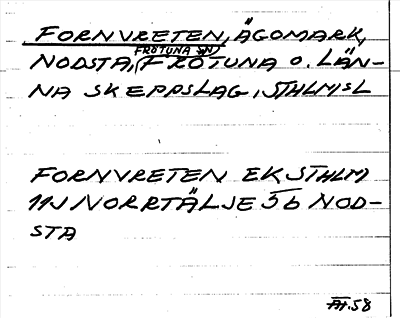 FORNVRETEN, ÄGOMARK,
FRÖTUNA SN
NODSTA, (FRÖTUNA O. LÄN-
NA SKEPPSLAG, STHLMSL
FORNVRETEN EK STHLM
11J NORRTÄLJE 5b NOD-
STA
58